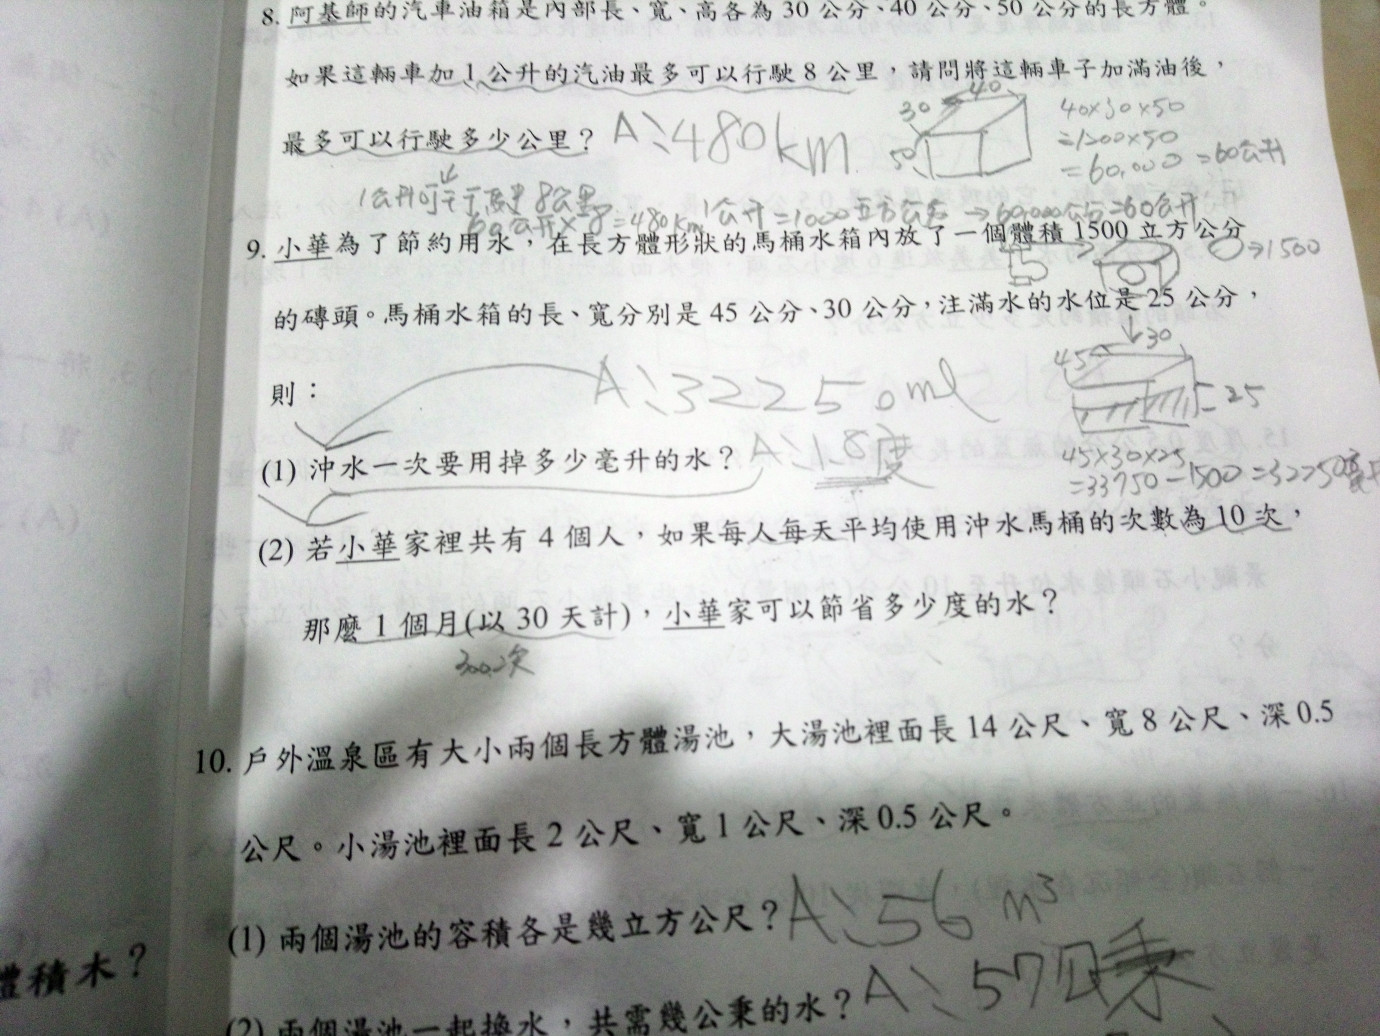 8. 阿基師的汽車油箱是內部長、寬、高各為 30 公分、40 公分、50 公分的長方體。
如果這輛車加 1 公升的汽油最多可以行駛 8 公里，請問將這輛車子加滿油後，
最多可以行駛多少公里？ A：480km
30 40 50
40×30×50
=1200×50
=60,000 =60公升
60公升×8=480km 1公升=1000立方公分→60,000公分=60公升
9. 小華為了節約用水，在長方體形狀的馬桶水箱內放了一個體積 1500 立方公分
→1500
的磚頭。馬桶水箱的長、寬分別是 45 公分、30 公分，注滿水的水位是 25 公分，
45 30 25
則： A：32250ml
(1) 沖水一次要用掉多少毫升的水？ A：1.8度
45×30×25
=33750-1500=32250毫升
(2) 若小華家裡共有 4 個人，如果每人每天平均使用沖水馬桶的次數為 10 次，
那麼 1 個月(以 30 天計)，小華家可以節省多少度的水？
300次
10. 戶外溫泉區有大小兩個長方體湯池，大湯池裡面長 14 公尺、寬 8 公尺、深 0.5
公尺。小湯池裡面長 2 公尺、寬 1 公尺、深 0.5 公尺。
(1) 兩個湯池的容積各是幾立方公尺？ A：56 m³
體積木？
(2) 兩個湯池一起換水，共需幾公秉的水？ A：57公秉